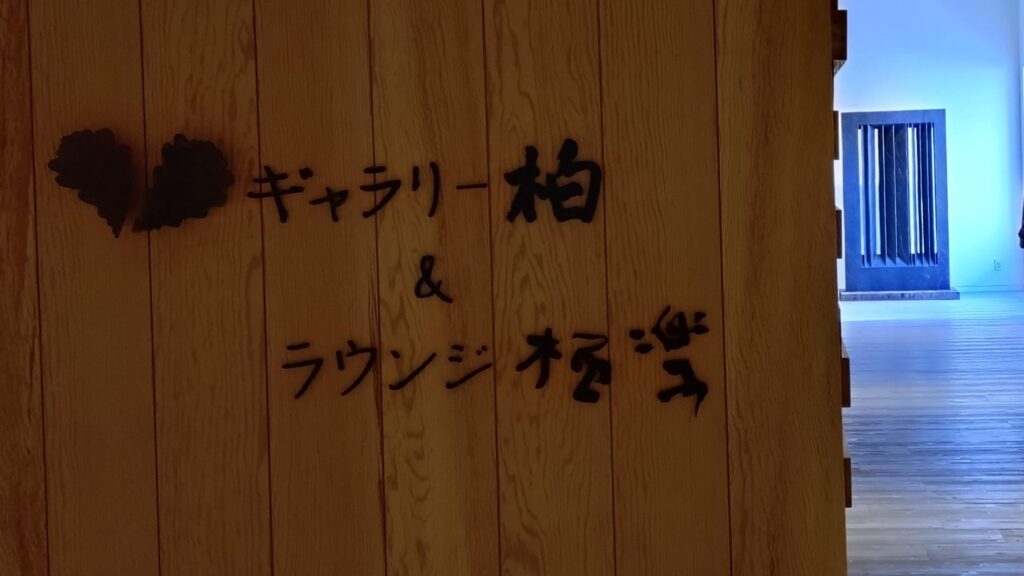 ギャラリー柏
&
ラウンジ極楽